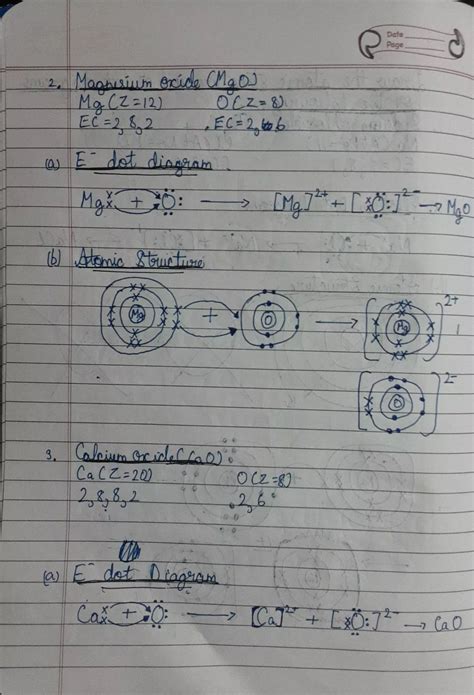 Date
Page
2. Magnisium oxide (MgO)
Mg (Z=12) O (Z=8)
EC=2,8,2 EC=2,6
(a) E⁻ dot diagram
Mg + O: → [Mg]²⁺ + [O:]²⁻ → MgO
(b) Atomic Structure
Mg + O → [Mg]²⁺
[O]²⁻
3. Calcium oxide (CaO)
Ca (Z=20) O (Z=8)
2,8,8,2 2,6
(a) E⁻ dot Diagram
Ca + O: → [Ca]²⁺ + [O:]²⁻ → CaO